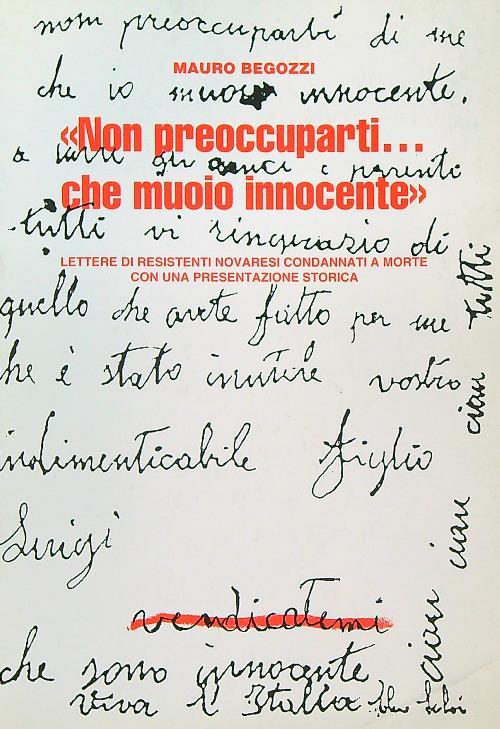 non preoccuparti di me
MAURO BEGOZZI
che io muoio innocente.
«Non preoccuparti...
a tutti gli amici e parenti
che muoio innocente»
tutti vi ringrazio di
LETTERE DI RESISTENTI NOVARESI CONDANNATI A MORTE
CON UNA PRESENTAZIONE STORICA
quello che avete fatto per me
che è stato inutile vostro
indimenticabile figlio
Luigi
vendicatemi
che sono innocente
viva l'Italia
ciau ciau ciau tutti